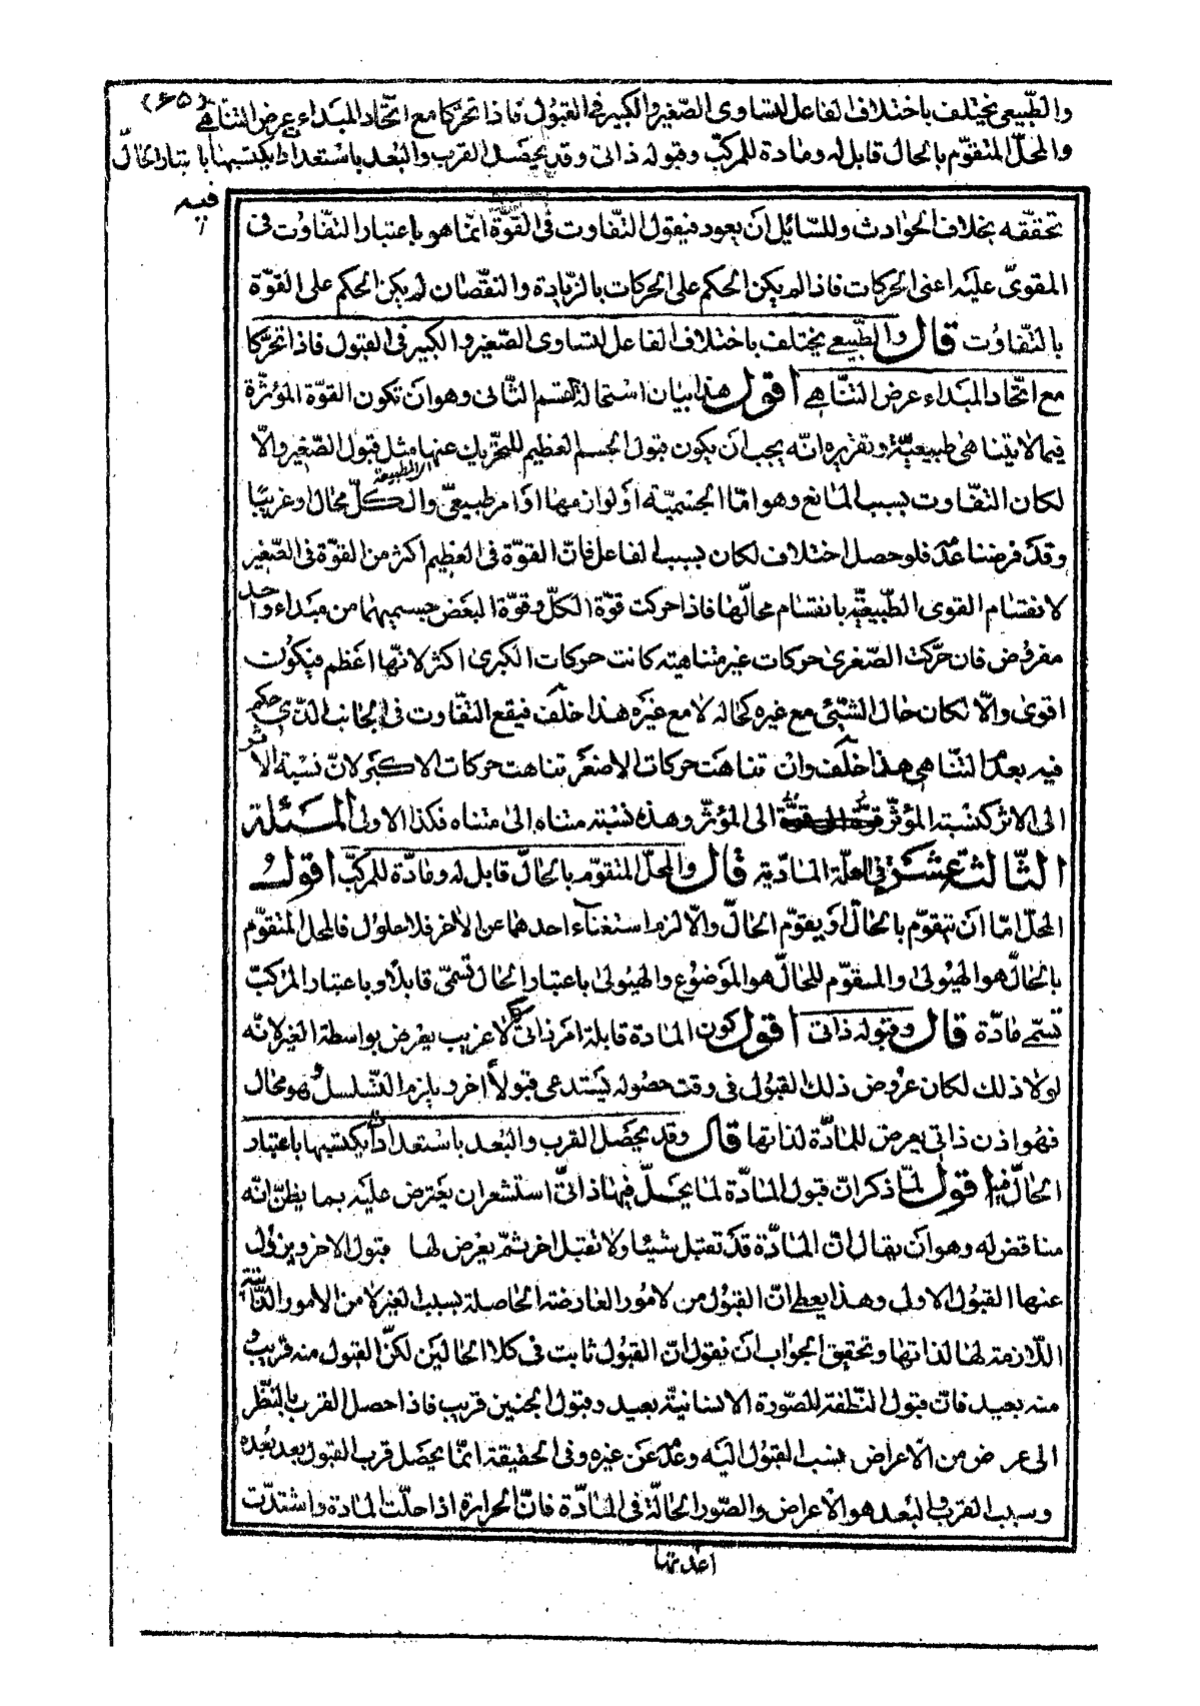 والطبيعى يختلف باختلاف الفاعل لتساوى الصغير والكبير فى القبول فاذا تحركا مع اتحاد المبداء عرض التناهى (٦٥)
والمحل المتقوم بالحال قابل له ومادة للمركب وقبوله ذاتى وقد يحصل القرب والبعد باستعداد يكتسبها باعتبار الحال
فيه
تحققه بخلاف الحوادث وللسائل ان يعود فيقول التفاوت فى القوة انما هو باعتبار التفاوت فى
المقوى عليه اعنى الحركات فاذا لم يكن الحكم على الحركات بالزيادة والنقصان لم يكن الحكم على القوة
بالتفاوت قال والطبيعى يختلف باختلاف الفاعل لتساوى الصغير والكبير فى القبول فاذا تحركا
مع اتحاد المبداء عرض التناهى اقول هذا بيان استحالة القسم الثانى وهو ان تكون القوة المؤثرة
فيما لا يتناهى طبيعية وتقريره انه يجب ان يكون قبول الجسم العظيم للتحريك عنها مثل قبول الصغير والا
لكان التفاوت بسبب المانع وهو اما الجسمية او لوازمها او امر طبيعى والكل محال او غريبا
وقد فرضنا عدمه فلو حصل اختلاف لكان بسبب الفاعل فان القوة فى العظيم اكثر من القوة فى الصغير
لانقسام القوى الطبيعية بانقسام محالها فاذا حركت قوة الكل وقوة البعض جسميهما من مبداء واحد
مفروض فان حركت الصغرى حركات غير متناهية كانت حركات الكبرى اكثر لانها اعظم فيكون
اقوى والا لكان حال الشئ مع غيره كحاله لا مع غيره هذا خلف فيقع التفاوت فى الجانب الذى حكم
فيه بعدم التناهى هذا خلف وان تناهت حركات الاصغر تناهت حركات الاكبر لان نسبة الاثر
الى الاثر كنسبة المؤثر الى المؤثر وهذه نسبة متناه الى متناه فكذا الاولى المسئلة
الثالث عشر فى العلة المادية قال والمحل المتقوم بالحال قابل له ومادة للمركب اقول
المحل اما ان يتقوم بالحال او يقوم الحال والا لزم استغناء احدهما عن الاخر فلا حلول فالمحل المتقوم
بالحال هو الهيولى والمقوم للحال هو الموضوع والهيولى باعتبار الحال تسمى قابلا وباعتبار المركب
تسمى مادة قال وقبوله ذاتى اقول كون المادة قابلة امر ذاتى لا غريب يعرض بواسطة الغير لانه
لولا ذلك لكان عروض ذلك القبول فى وقت حصوله يستدعى قبولا اخر ويلزم التسلسل وهو محال
فهو اذن ذاتى يعرض للمادة لذاتها قال وقد يحصل القرب والبعد باستعداد يكتسبها باعتبار
الحال فيه اقول لما ذكر ان قبول المادة لما يحل فيها ذاتى استشعر ان يعترض عليه بما يظن انه
مناقض له وهو ان يقال ان المادة قد تقبل شيئا ولا تقبل اخر ثم يعرض لها قبول الاخر ويزول
عنها القبول الاولى وهذا يعطى ان القبول من الامور العارضة الحاصلة بسبب الغير لا من الامور الذاتية
اللازمة لها لذاتها وتحقيق الجواب ان نقول ان القبول ثابت فى كلا الحالين لكن القبول منه قريب و
منه بعيد فان قبول النطفة للصورة الانسانية بعيد وقبول الجنين قريب فاذا حصل القرب بالنظر
الى عرض من الاعراض نسب القبول اليه وعدم عن غيره وفى الحقيقة انما يحصل قرب القبول بعد بعده
وسبب القرب والبعد هو الاعراض والصور الحالة فى المادة فان الحرارة اذا حلت المادة واشتدت